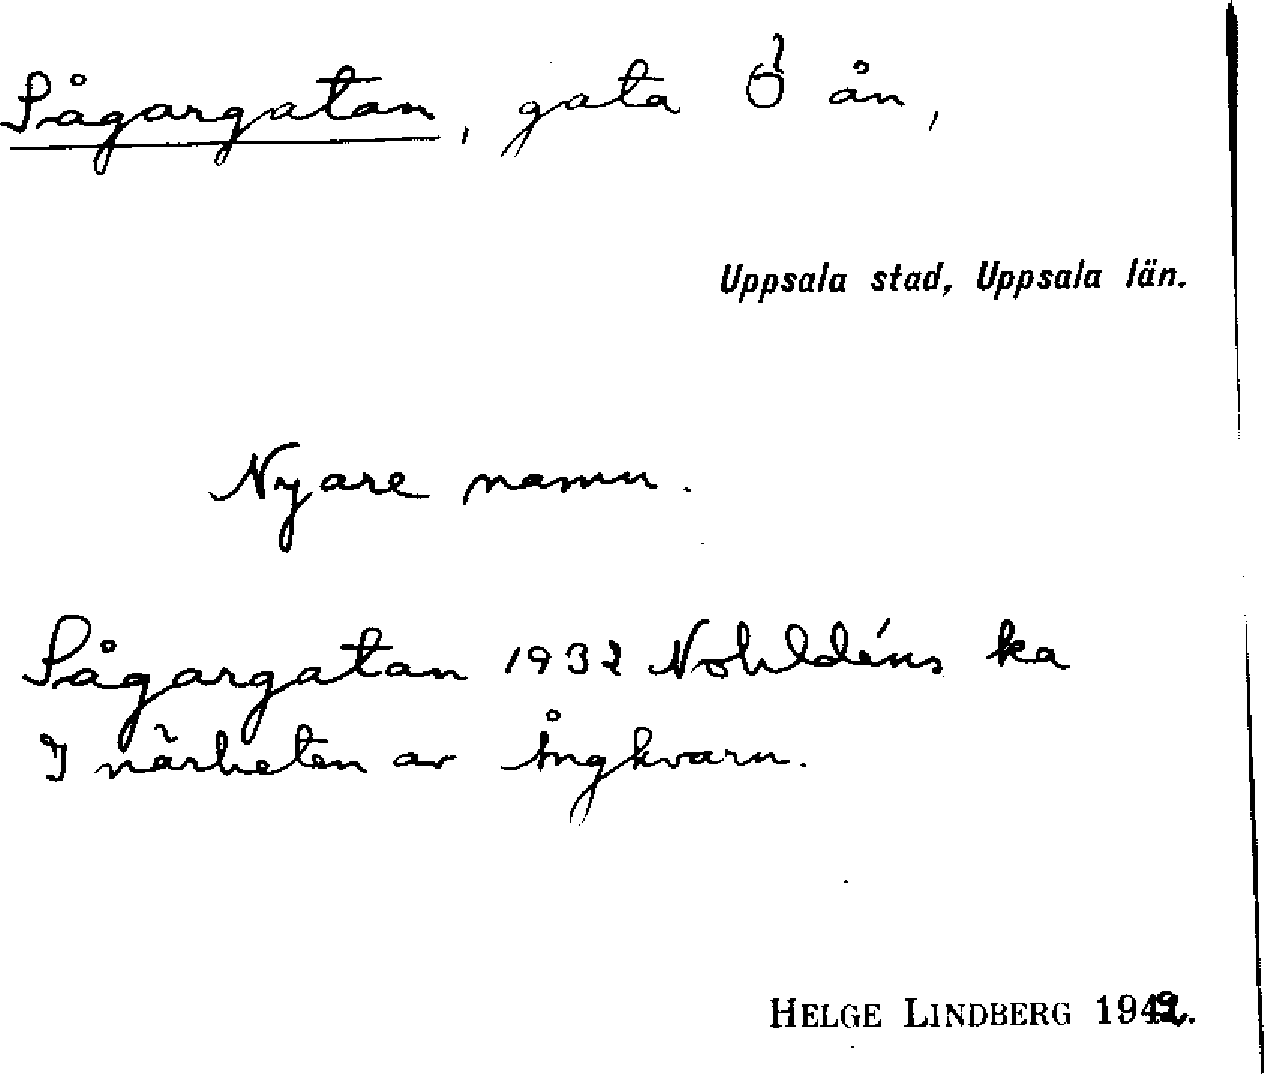 Sågargatan, gata Ö ån,
Uppsala stad, Uppsala län.
Nyare namn.
Sågargatan 1932 Nohldéns ka
I närheten av Ångkvarn.
HELGE LINDBERG 1942.